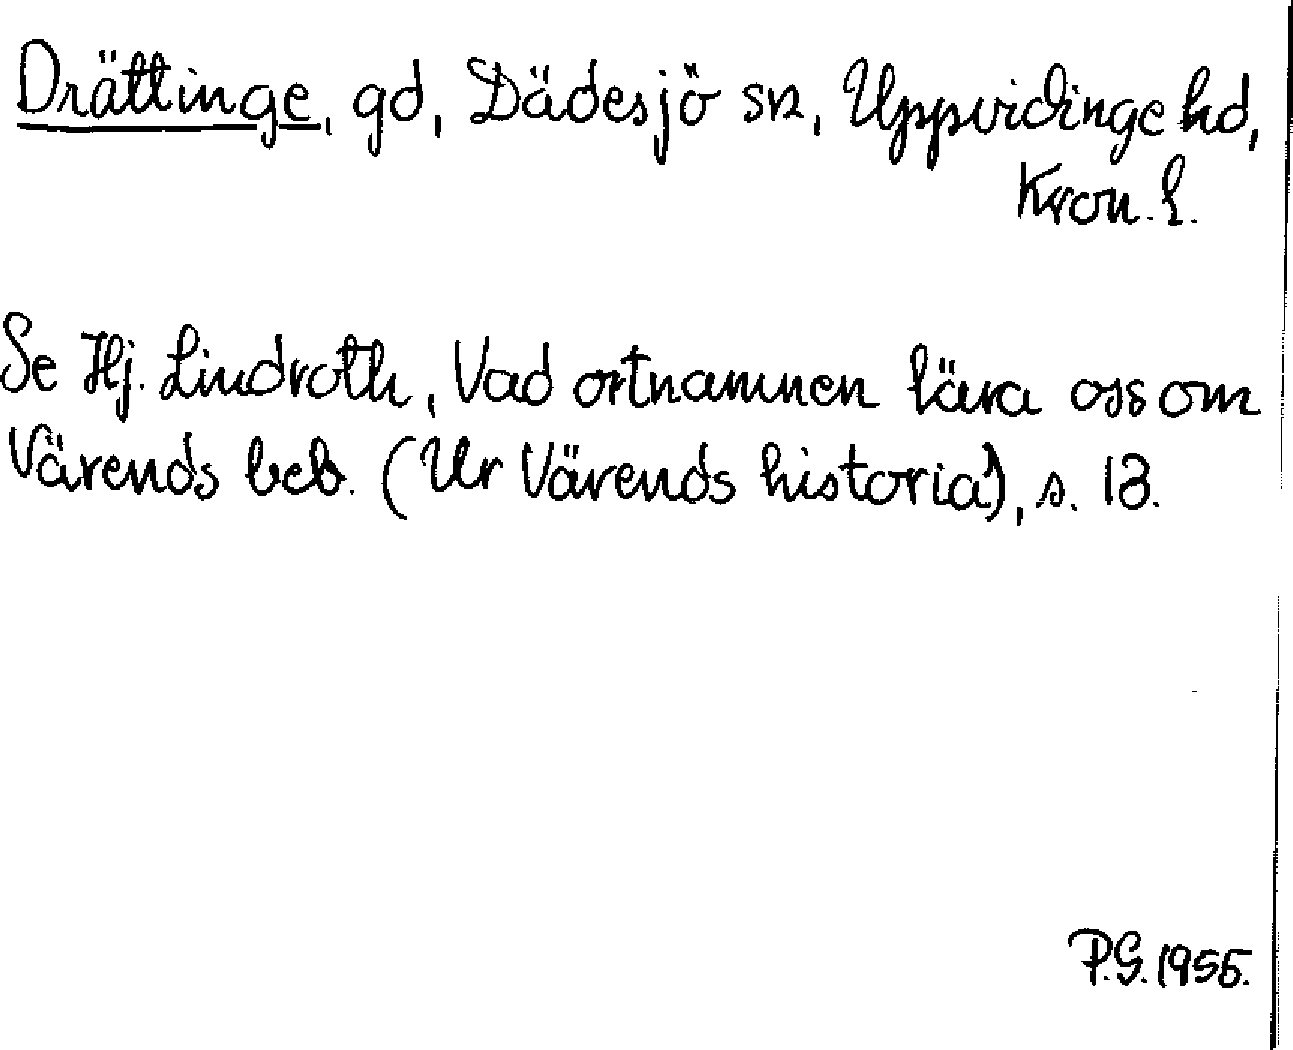 Drättinge, gd, Dädesjö sn, Uppvidinge hd,
Kron. l.
Se Hj. Lindroth, Vad ortnamnen lära oss om
Värends beb. (Ur Värends historia), s. 13.
P.G. 1955.